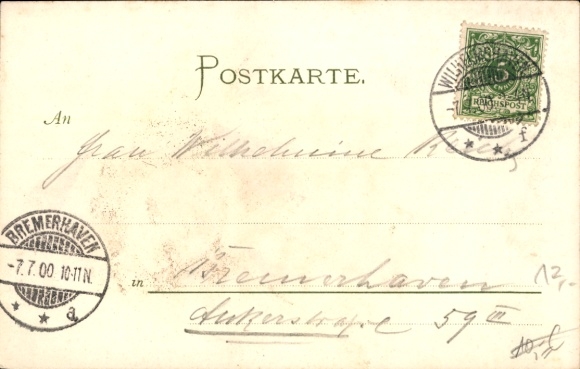 POSTKARTE.
REICHSPOST
WILHELMSHAVEN
f
An
Frau Wilhelmine
BREMERHAVEN
-7.7.00 10-11 N.
a
in
Bremerhaven
Ankerstraße 59 III
12,-